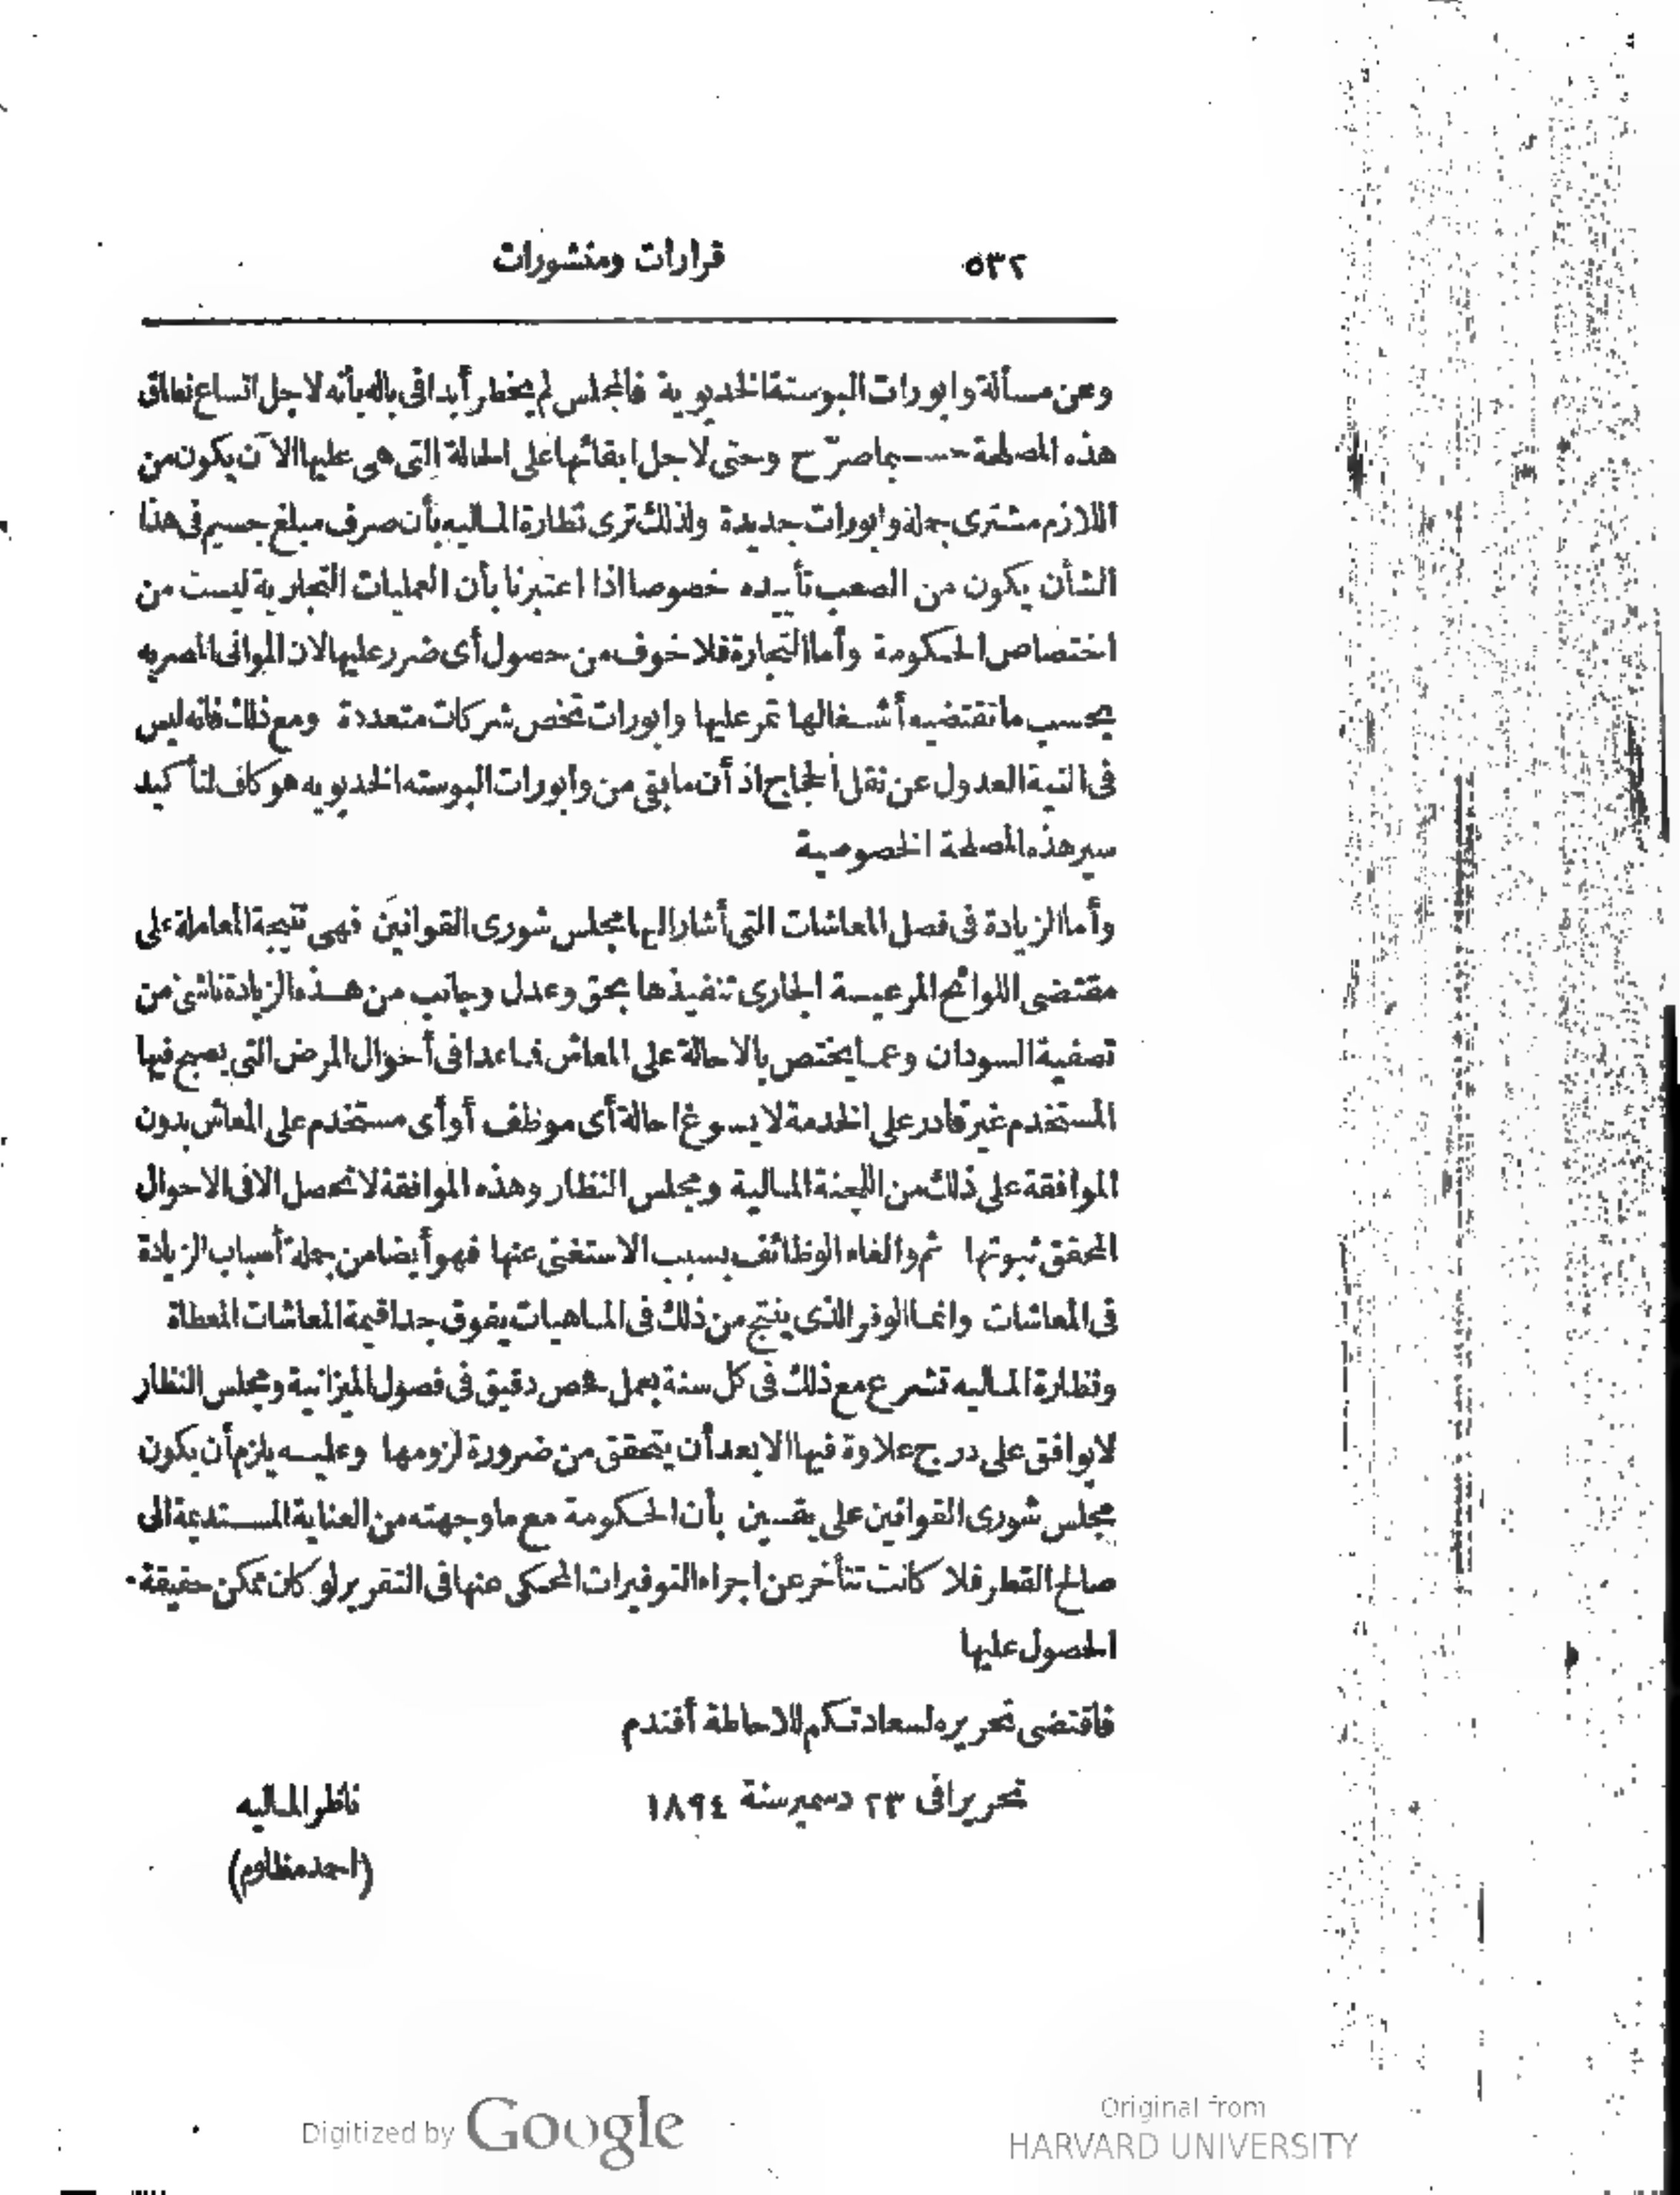 ٥٣٢ قرارات ومنشورات
وعن مسألة وابورات البوستة الخديوية فالمجلس لم يخطر أبدا فى باله بأنه لاجل اتساع نطاق
هذه المصلحة حسبما صرّح وحتى لاجل ابقائها على الحالة التى هى عليها الآن يكون من
اللازم مشترى جملة وابورات جديدة ولذلك ترى نظارة الماليه بأن صرف مبلغ جسيم فى هذا
الشأن يكون من الصعب تأييده خصوصا اذا اعتبرنا بأن العمليات التجارية ليست من
اختصاص الحكومة وأما التجارة فلا خوف من حصول أى ضرر عليها لان الموانى المصريه
بحسب ما تقتضيه أشغالها تمر عليها وابورات تخص شركات متعددة ومع ذلك فانه ليس
فى النية العدول عن نقل الحجاج اذ أن ما بقى من وابورات البوسته الخديويه هو كاف لتأكيد
سير هذه المصلحة الخصوصية
وأما الزيادة فى فصل المعاشات التى أشار اليها مجلس شورى القوانين فهى نتيجة المعاملة على
مقتضى اللوائح المرعيسة الجارى تنفيذها بحق وعدل وجانب من هذه الزيادة ناشئ من
تصفية السودان وعما يختص بالاحالة على المعاش فماعدا فى أحوال المرض التى يصبح فيها
المستخدم غير قادر على الخدمة لا يسوغ احالة أى موظف أو أى مستخدم على المعاش بدون
الموافقة على ذلك من اللجنة المالية ومجلس النظار وهذه الموافقة لا تحصل الا فى الاحوال
المحقق ثبوتها ثم والغاء الوظائف بسبب الاستغنى عنها فهو أيضا من جملة أسباب الزيادة
فى المعاشات وانما الوفر الذى ينتج من ذلك فى الماهيات يفوق جدا قيمة المعاشات المعطاة
ونظارة الماليه تشرع مع ذلك فى كل سنة بعمل فحص دقيق فى فصول الميزانية ومجلس النظار
لا يوافق على درج علاوة فيها الا بعد أن يتحقق من ضرورة لزومها وعليه يلزم أن يكون
مجلس شورى القوانين على يقين بأن الحكومة مع ما وجهته من العناية المستدعة الى
صالح القطر فلا كانت تتأخر عن اجراء التوفيرات المحكى عنها فى التقرير لو كان ممكن حقيقة
الحصول عليها
فاقتضى تحريره لسعادتكم للاحاطة أفندم
تحريرا فى ٢٣ دسمبر سنة ١٨٩٤
ناظر الماليه
(احمد مظلوم)
Digitized by Google
Original from
HARVARD UNIVERSITY